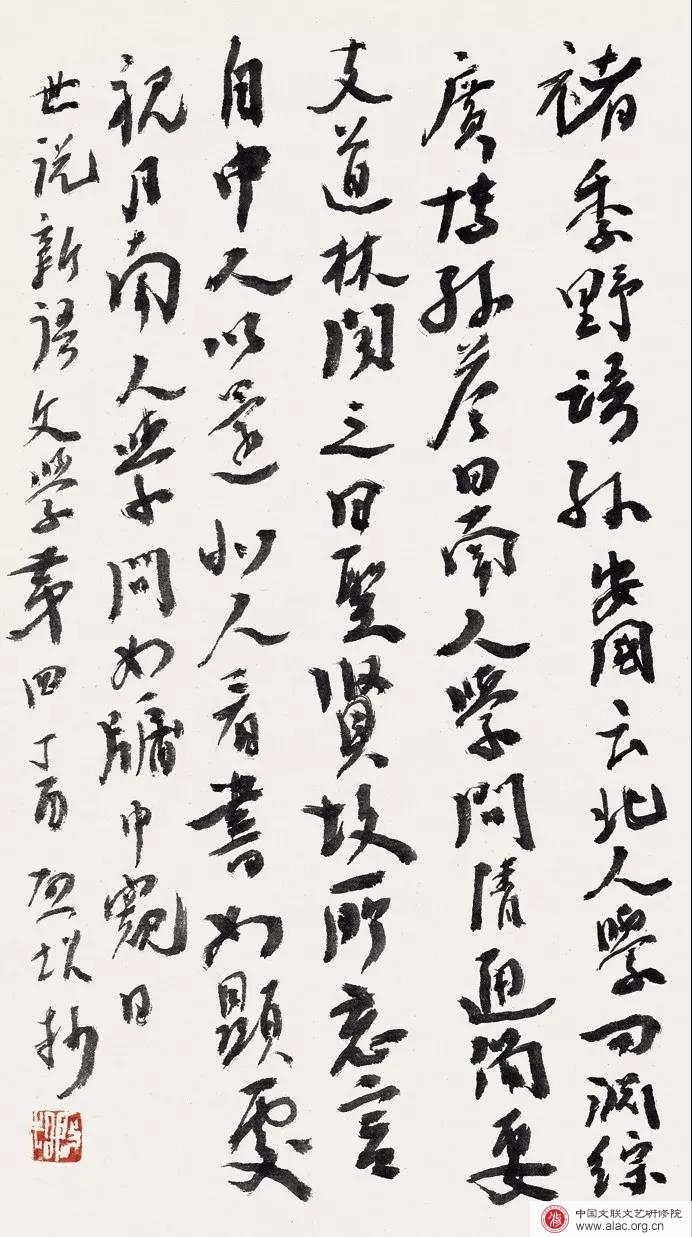 褚季野語孫安國云北人學問淵綜
廣博孫答曰南人學問清通簡要
支道林聞之曰聖賢故所忘言
自中人以還北人看書如顯處
視月南人學問如牖中窺日
世说新語文學第四丁酉抄
中国文联文艺研修院
www.alac.org.cn